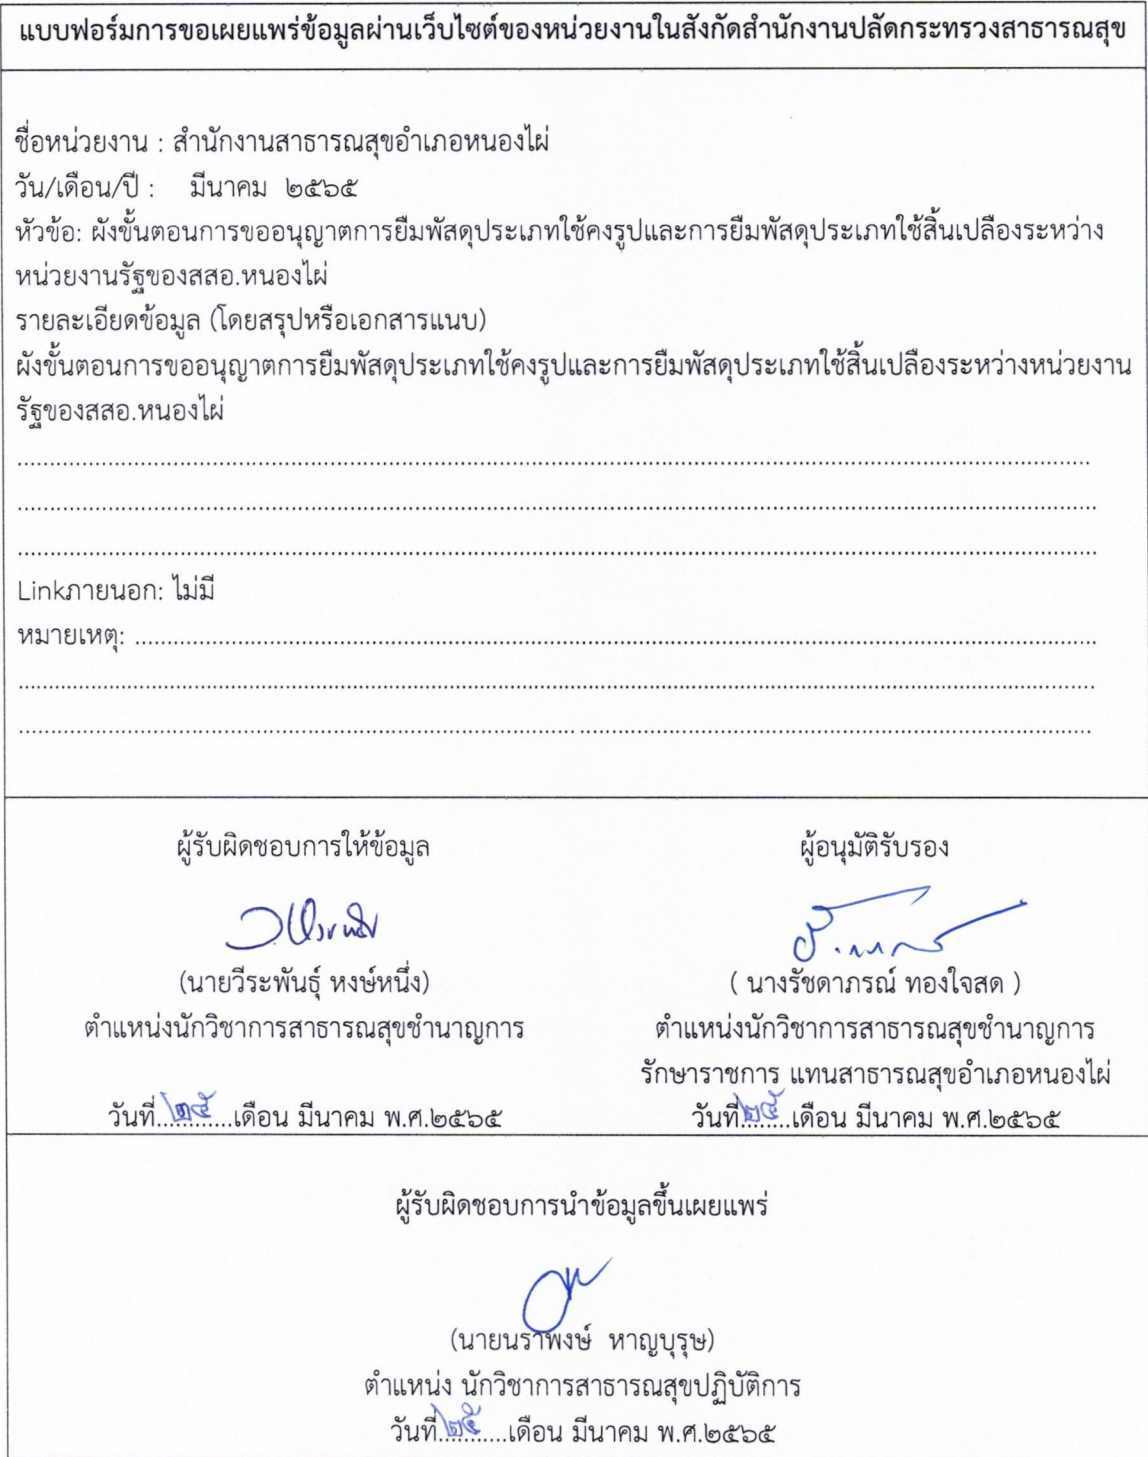 แบบฟอร์มการขอเผยแพร่ข้อมูลผ่านเว็บไซต์ของหน่วยงานในสังกัดสำนักงานปลัดกระทรวงสาธารณสุข
ชื่อหน่วยงาน : สำนักงานสาธารณสุขอำเภอหนองไผ่
วัน/เดือน/ปี : มีนาคม ๒๕๖๕
หัวข้อ: ผังขั้นตอนการขออนุญาตการยืมพัสดุประเภทใช้คงรูปและการยืมพัสดุประเภทใช้สิ้นเปลืองระหว่าง
หน่วยงานรัฐของสสอ.หนองไผ่
รายละเอียดข้อมูล (โดยสรุปหรือเอกสารแนบ)
ผังขั้นตอนการขออนุญาตการยืมพัสดุประเภทใช้คงรูปและการยืมพัสดุประเภทใช้สิ้นเปลืองระหว่างหน่วยงาน
รัฐของสสอ.หนองไผ่
Linkภายนอก: ไม่มี
หมายเหตุ: ........................................
ผู้รับผิดชอบการให้ข้อมูล
(นายวีระพันธุ์ หงษ์หนึ่ง)
ตำแหน่งนักวิชาการสาธารณสุขชำนาญการ
วันที่ ๒๕ เดือน มีนาคม พ.ศ.๒๕๖๕
ผู้อนุมัติรับรอง
( นางรัชดาภรณ์ ทองใจสด )
ตำแหน่งนักวิชาการสาธารณสุขชำนาญการ
รักษาราชการ แทนสาธารณสุขอำเภอหนองไผ่
วันที่ ๒๕ เดือน มีนาคม พ.ศ.๒๕๖๕
ผู้รับผิดชอบการนำข้อมูลขึ้นเผยแพร่
(นายนราพงษ์ หาญบุรุษ)
ตำแหน่ง นักวิชาการสาธารณสุขปฏิบัติการ
วันที่ ๒๕ เดือน มีนาคม พ.ศ.๒๕๖๕